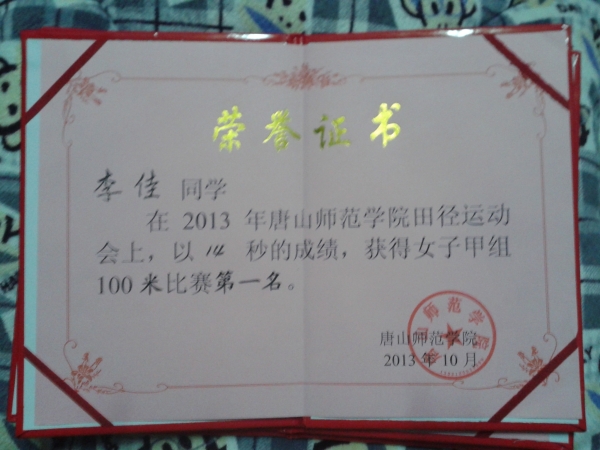 荣誉证书
李佳 同学
在 2013 年唐山师范学院田径运动
会上，以 14 秒的成绩，获得女子甲组
100 米比赛第一名。
唐山师范学院
2013 年 10 月
唐山师范学院